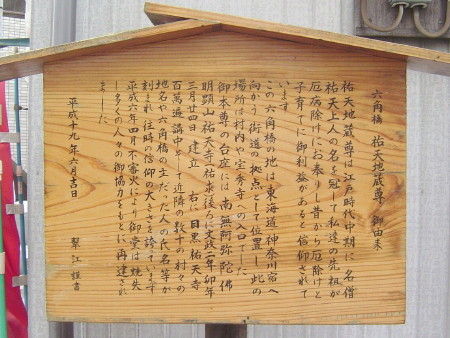 六角橋 祐天地蔵尊 御由来
祐天地蔵尊は江戸時代中期に名僧
祐天上人の名を冠して私達の先祖が
厄病除けにお奉り昔から厄除けと
子育てに御利益があると信仰されて
います
この六角橋の地は東海道神奈川宿へ
向かう街道の拠点として位置し此の
場所は杉内や宝秀寺への入口でした
御本尊の台座には 南無阿弥陀佛
明顕山祐天寺祐東後ろに文政二年卯年
三月廿四日建立 右に目黒祐天寺
百萬遍講中そして近隣の数十の村々の
地名や六角橋の主だった人の氏名等が
刻まれ往時の信仰の大きさを誇っています
平成六年四月不審火により御堂は焼失
し多くの人々の御協力をもとに再建され
ました
平成十九年六月吉日
翠江 謹書